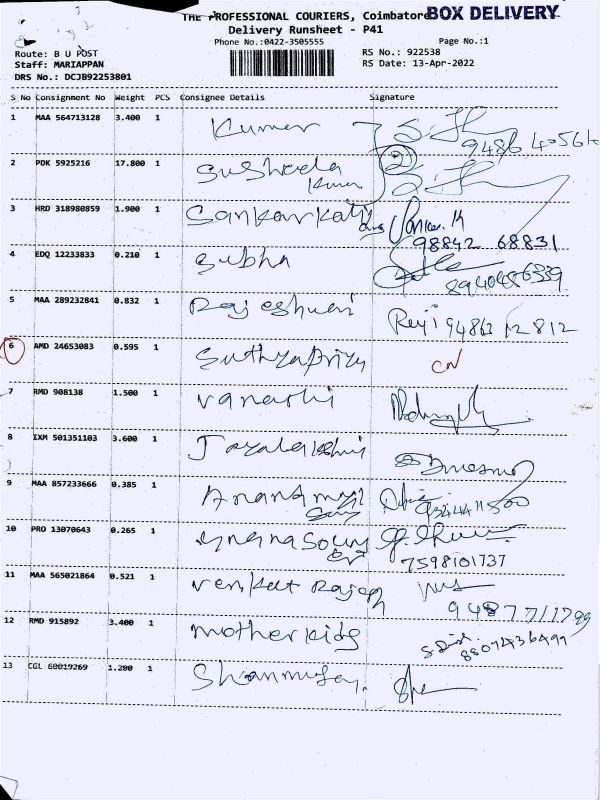 THE PROFESSIONAL COURIERS, Coimbatore BOX DELIVERY
Delivery Runsheet - P41
Phone No.:0422-3505555 Page No.:1
Route: B U POST RS No.: 922538
Staff: MARIAPPAN RS Date: 13-Apr-2022
DRS No.: DCJB92253801
S No Consignment No Weight PCS Consignee Details Signature
1 MAA 564713128 3.400 1 Kumar
2 PDK 5925216 17.800 1 Susheela 2
Kumar
3 HRD 318980859 1.900 1 Sankarkali
98842 68831
4 EDQ 12233833 0.210 1 Subha
5 MAA 289232841 0.832 1 Rajeshwari
6 AMD 24653083 0.595 1 Suthyapriya CN
7 RMD 908138 1.500 1 Vanathi
8 IXM 501351103 3.600 1 Jayalakshmi
9 MAA 857233666 0.385 1
10 PRO 13070643 0.265 1
7598101737
11 MAA 565021864 0.521 1 Venkat Rajesh
12 RMD 915892 3.400 1 Mother kids
13 CGL 60019269 1.200 1